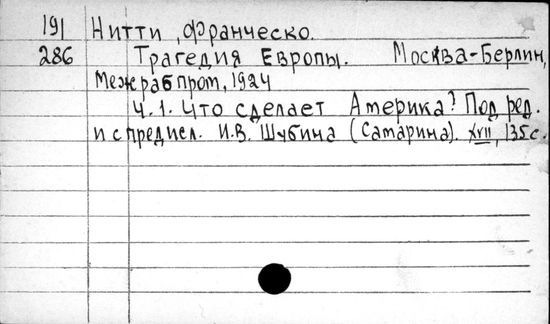 191 Нитти, Франческо.
286 Трагедия Европы. Москва-Берлин,
Межрабпром, 1924
Ч.1. Что сделает Америка? Под ред.
и с предисл. И.В. Шубина (Самарина). XVII, 135с.